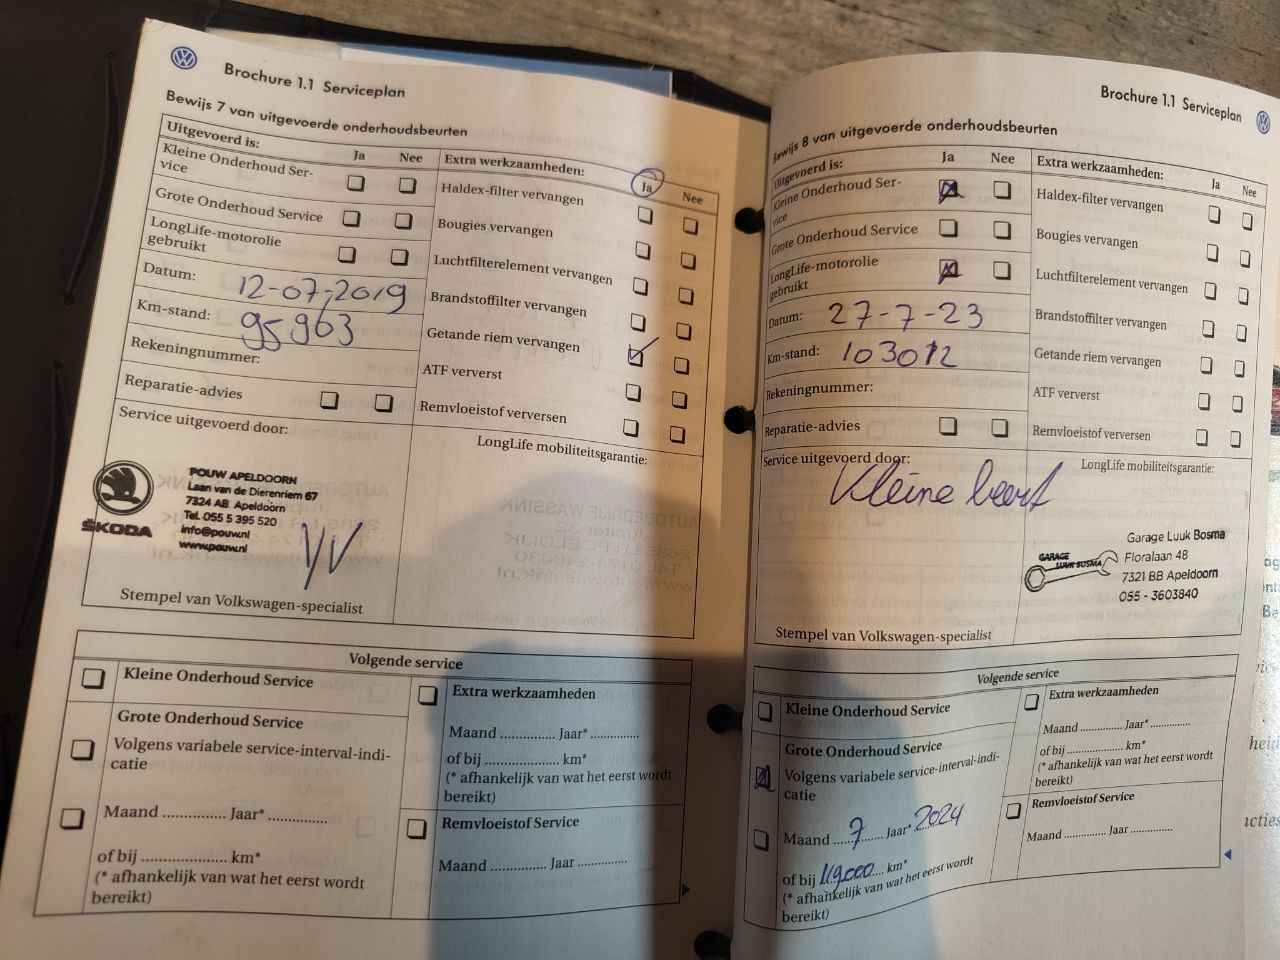 Brochure 1.1 Serviceplan
Bewijs 7 van uitgevoerde onderhoudsbeurten
Uitgevoerd is: Ja Nee
Kleine Onderhoud Ser-
vice
Grote Onderhoud Service
LongLife-motorolie
gebruikt
Datum: 12-07-2019
Km-stand: 95963
Rekeningnummer:
Reparatie-advies
Extra werkzaamheden: Ja Nee
Haldex-filter vervangen
Bougies vervangen
Luchtfilterelement vervangen
Brandstoffilter vervangen
Getande riem vervangen
ATF ververst
Remvloeistof verversen
Service uitgevoerd door:
LongLife mobiliteitsgarantie:
ŠKODA
POUW APELDOORN
Laan van de Dierenriem 67
7324 AB Apeldoorn
Tel. 055 5 395 520
info@pouw.nl
www.pouw.nl
Stempel van Volkswagen-specialist
Volgende service
Kleine Onderhoud Service
Grote Onderhoud Service
Volgens variabele service-interval-indi-
catie
Maand .............. Jaar* ..............
of bij ..................... km*
(* afhankelijk van wat het eerst wordt
bereikt)
Extra werkzaamheden
Maand .............. Jaar* ............
of bij ..................... km*
(* afhankelijk van wat het eerst wordt
bereikt)
Remvloeistof Service
Maand .............. Jaar ............
Brochure 1.1 Serviceplan
Bewijs 8 van uitgevoerde onderhoudsbeurten
Uitgevoerd is: Ja Nee
Kleine Onderhoud Ser-
vice
Grote Onderhoud Service
LongLife-motorolie
gebruikt
Datum: 27-7-23
Km-stand: 103012
Rekeningnummer:
Reparatie-advies
Extra werkzaamheden: Ja Nee
Haldex-filter vervangen
Bougies vervangen
Luchtfilterelement vervangen
Brandstoffilter vervangen
Getande riem vervangen
ATF ververst
Remvloeistof verversen
Service uitgevoerd door:
Kleine beurt
LongLife mobiliteitsgarantie:
GARAGE
LUUK BOSMA
Garage Luuk Bosma
Floralaan 48
7321 BB Apeldoorn
055 - 3603840
Stempel van Volkswagen-specialist
Volgende service
Kleine Onderhoud Service
Grote Onderhoud Service
Volgens variabele service-interval-indi-
catie
Maand 7 Jaar* 2024
of bij 119.000 km*
(* afhankelijk van wat het eerst wordt
bereikt)
Extra werkzaamheden
Maand .............. Jaar* ............
of bij ..................... km*
(* afhankelijk van wat het eerst wordt
bereikt)
Remvloeistof Service
Maand .............. Jaar ............